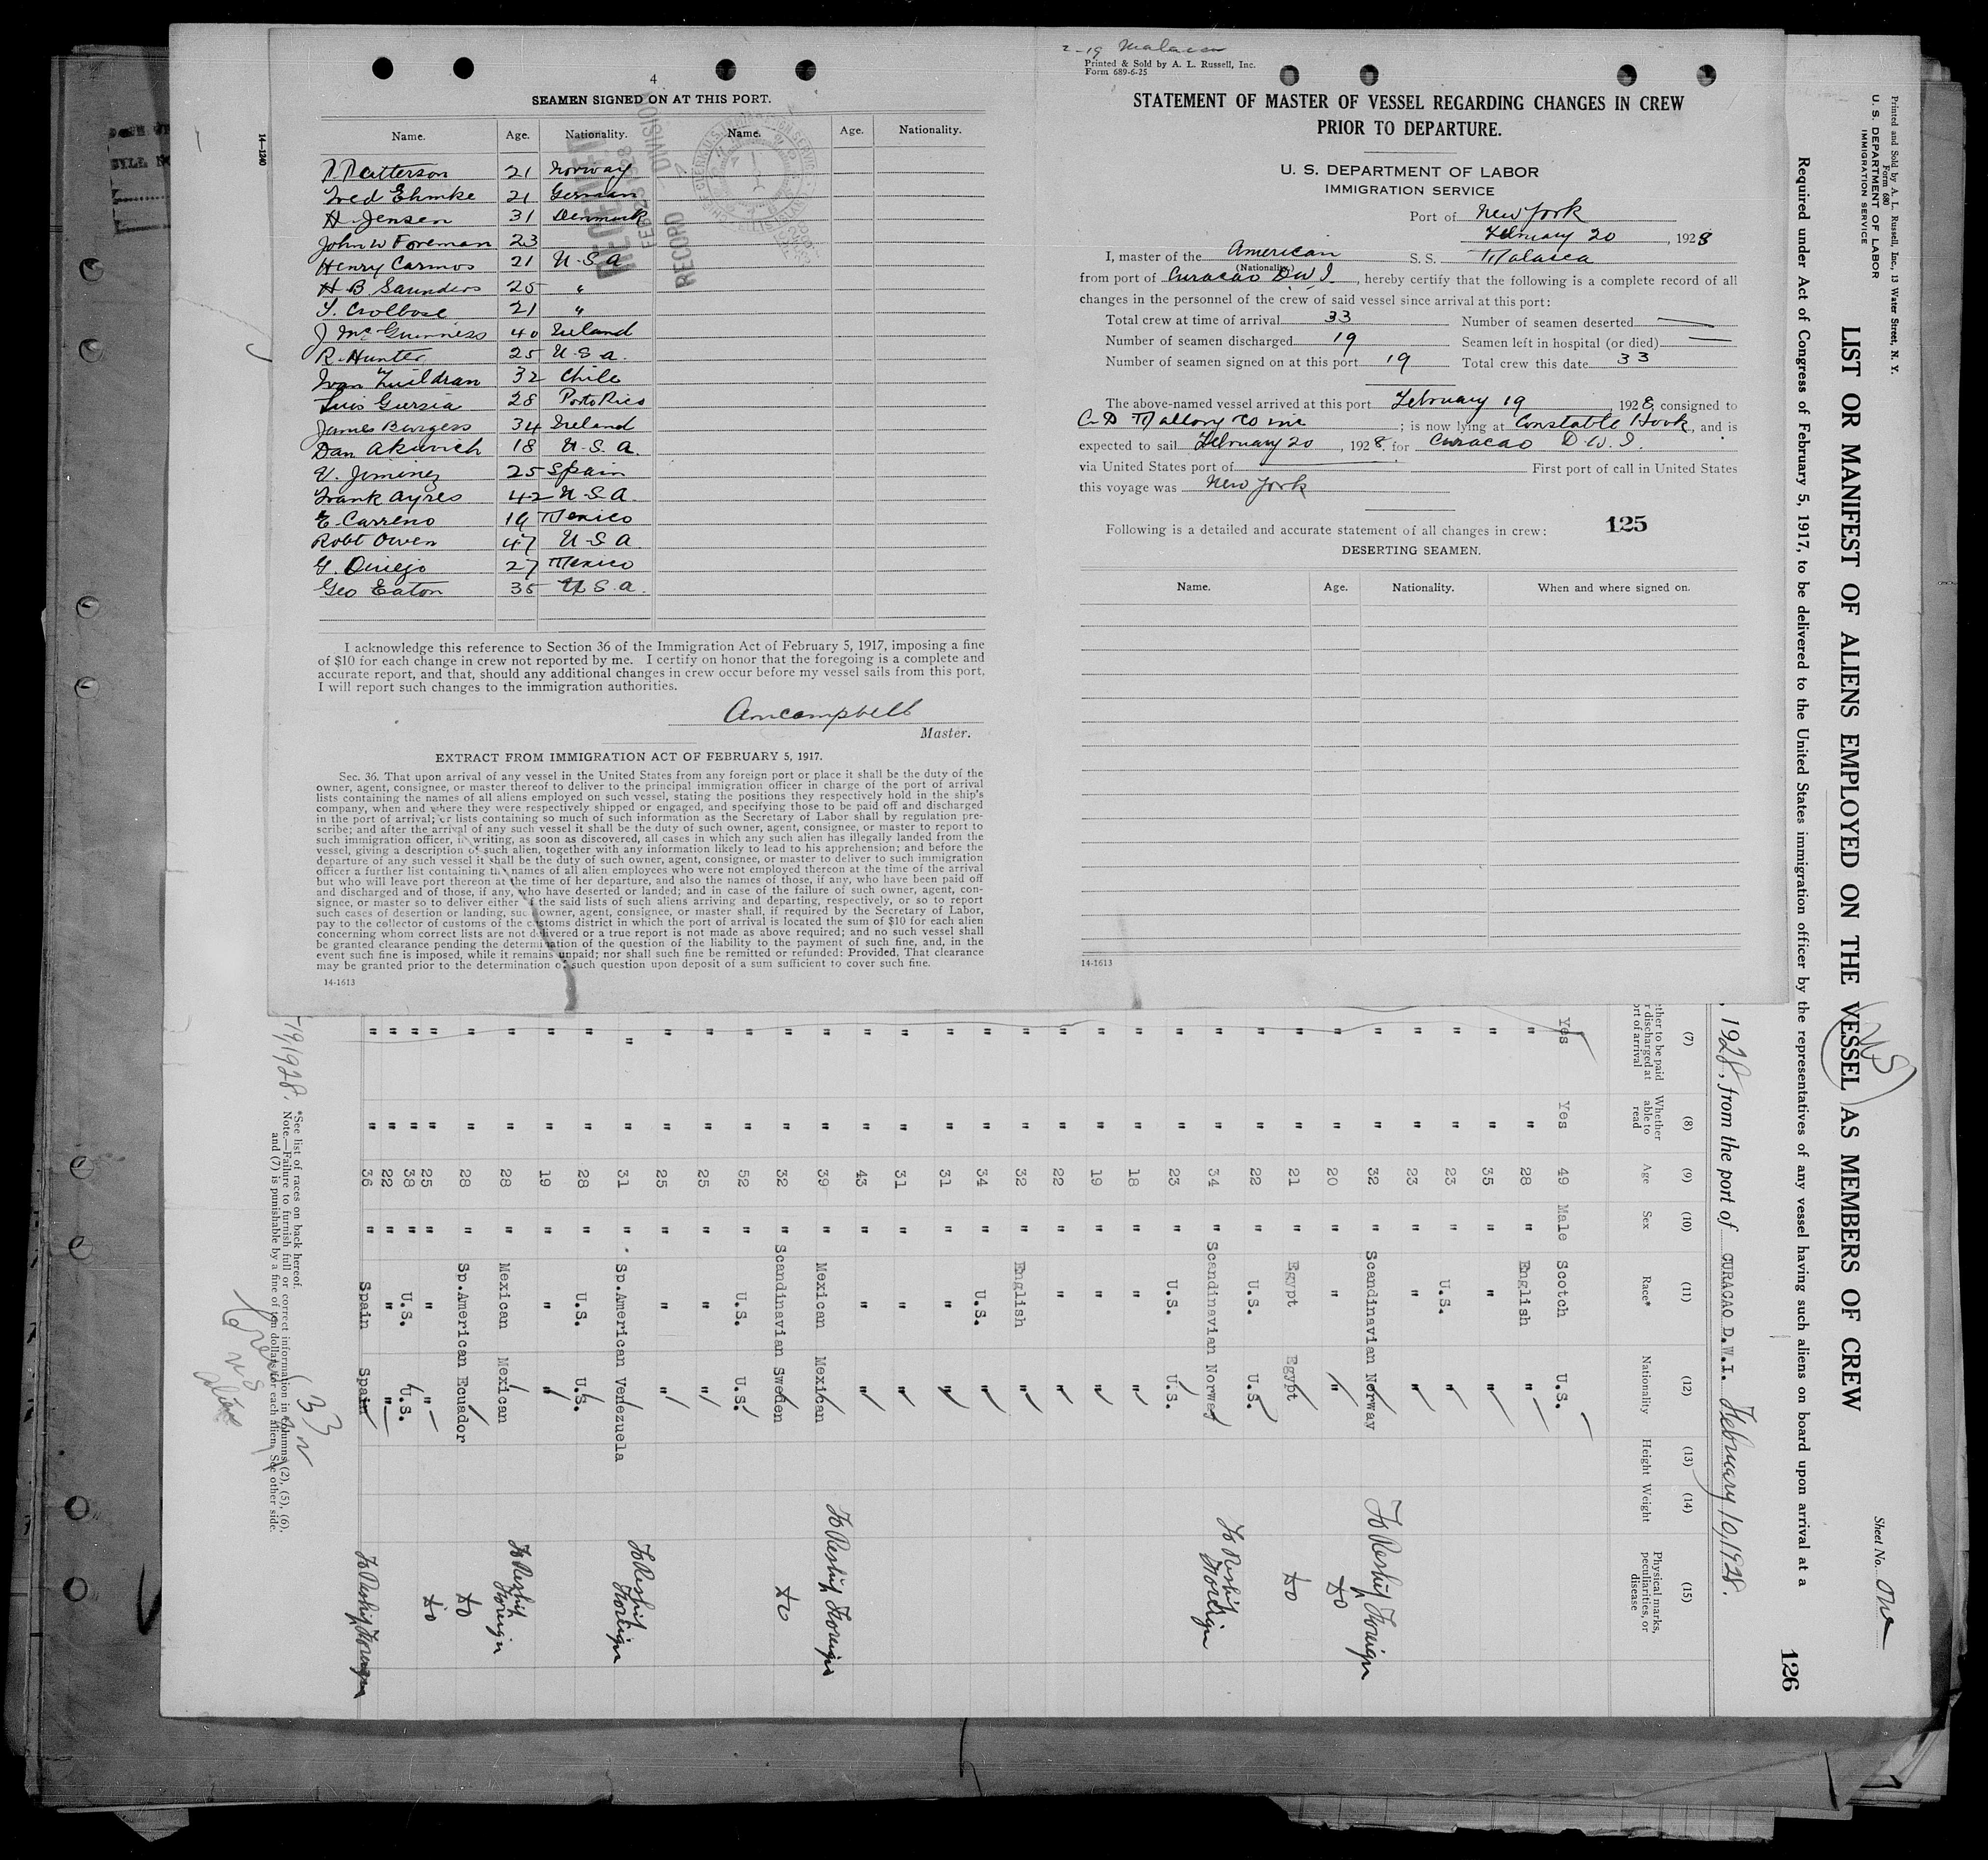 4
SEAMEN SIGNED ON AT THIS PORT.
Name. Age. Nationality. Name. Age. Nationality.
Patterson 21 Norway
Fred Ehmke 21 German
H. Jensen 31 Denmark
John W Foreman 23
Henry Carmos 21 U.S.A
H B Saunders 25 "
21 "
J McGuinness 40 Ireland
R. Hunter 25 U.S.a.
32 Chile
Luis Garsia 28 Porto Rico
James Burgess 34 Ireland
Dan Akuvich 18 U.S.A.
V. Jiminez 25 Spain
Frank Ayres 42 U.S.A.
E. Carreno 19 Mexico
Robt Owen 47 U.S.A.
27 Mexico
Geo Eaton 35 U.S.a.
RECEIVED
FEB 23 1928
RECORD DIVISION
I acknowledge this reference to Section 36 of the Immigration Act of February 5, 1917, imposing a fine
of $10 for each change in crew not reported by me. I certify on honor that the foregoing is a complete and
accurate report, and that, should any additional changes in crew occur before my vessel sails from this port,
I will report such changes to the immigration authorities.
Campbell
Master.
EXTRACT FROM IMMIGRATION ACT OF FEBRUARY 5, 1917.
Sec. 36. That upon arrival of any vessel in the United States from any foreign port or place it shall be the duty of the
owner, agent, consignee, or master thereof to deliver to the principal immigration officer in charge of the port of arrival
lists containing the names of all aliens employed on such vessel, stating the positions they respectively hold in the ship's
company, when and where they were respectively shipped or engaged, and specifying those to be paid off and discharged
in the port of arrival; or lists containing so much of such information as the Secretary of Labor shall by regulation pre-
scribe; and after the arrival of any such vessel it shall be the duty of such owner, agent, consignee, or master to report to
such immigration officer, in writing, as soon as discovered, all cases in which any such alien has illegally landed from the
vessel, giving a description of such alien, together with any information likely to lead to his apprehension; and before the
departure of any such vessel it shall be the duty of such owner, agent, consignee, or master to deliver to such immigration
officer a further list containing the names of all alien employees who were not employed thereon at the time of the arrival
but who will leave port thereon at the time of her departure, and also the names of those, if any, who have been paid off
and discharged and of those, if any, who have deserted or landed; and in case of the failure of such owner, agent, con-
signee, or master so to deliver either of the said lists of such aliens arriving and departing, respectively, or so to report
such cases of desertion or landing, such owner, agent, consignee, or master shall, if required by the Secretary of Labor,
pay to the collector of customs of the customs district in which the port of arrival is located the sum of $10 for each alien
concerning whom correct lists are not delivered or a true report is not made as above required; and no such vessel shall
be granted clearance pending the determination of the question of the liability to the payment of such fine, and, in the
event such fine is imposed, while it remains unpaid; nor shall such fine be remitted or refunded: Provided, That clearance
may be granted prior to the determination of such question upon deposit of a sum sufficient to cover such fine.
14-1613
14-1240
2-19 Malacca
Printed & Sold by A. L. Russell, Inc.
Form 689-6-25
STATEMENT OF MASTER OF VESSEL REGARDING CHANGES IN CREW
PRIOR TO DEPARTURE.
U. S. DEPARTMENT OF LABOR
IMMIGRATION SERVICE
Port of New York
February 20, 1928
I, master of the American S. S. Malacca
(Nationality.)
from port of Curacao D W I., hereby certify that the following is a complete record of all
changes in the personnel of the crew of said vessel since arrival at this port:
Total crew at time of arrival 33 Number of seamen deserted —
Number of seamen discharged 19 Seamen left in hospital (or died) —
Number of seamen signed on at this port 19 Total crew this date 33
The above-named vessel arrived at this port February 19, 1928, consigned to
C D Mallory Co inc; is now lying at Constable Hook, and is
expected to sail February 20, 1928, for Curacao D.W.I.
via United States port of — First port of call in United States
this voyage was New York
Following is a detailed and accurate statement of all changes in crew: 125
DESERTING SEAMEN.
Name. Age. Nationality. When and where signed on.
14-1613
Printed and Sold by A. L. Russell, Inc., 13 Water Street, N. Y.
Form 680
U. S. DEPARTMENT OF LABOR
IMMIGRATION SERVICE
Sheet No. One
LIST OR MANIFEST OF ALIENS EMPLOYED ON THE VESSEL AS MEMBERS OF CREW
US
126
Required under Act of Congress of February 5, 1917, to be delivered to the United States immigration officer by the representatives of any vessel having such aliens on board upon arrival at a
, 1928, from the port of CURACAO D.W.I. February 10, 1928.
(7) (8) (9) (10) (11) (12) (13) (14) (15)
ether to be paid r discharged at ort of arrival Whether able to read Age Sex Race* Nationality Height Weight Physical marks, peculiarities, or disease
Yes Yes 49 Male Scotch U.S.
" " 28 " English "
" " 35 " " "
" " 23 " U.S. "
" " 23 " " "
" " 32 " Scandinavian Norway To Reship Foreign
" " 20 " " " do
" " 21 " Egypt Egypt do
" " 22 " U.S. U.S.
" " 34 " Scandinavian Norway To Reship Foreign
" " 23 " U.S. U.S.
" " 18 " " "
" " 19 " " "
" " 22 " " "
" " 32 " English "
" " 34 " U.S. "
" " 31 " " "
" " 31 " " "
" " 43 " " "
" " 39 " Mexican Mexican To Reship Foreign
" " 32 " Scandinavian Sweden do
" " 52 " U.S. U.S.
" " 25 " " "
" " 25 " " "
" " 31 " Sp.American Venezuela To Reship Foreign
" " 28 " U.S. U.S.
" " 19 " " "
" " 28 " Mexican Mexican To Reship Foreign
" " 28 " Sp.American Ecuador do
" " 25 " " " do
" " 38 " U.S. U.S.
" " 22 " " "
" " 36 " Spain Spain To Reship Foreign
*See list of races on back hereof.
Note.—Failure to furnish full or correct information in columns (2), (5), (6),
and (7) is punishable by a fine of ten dollars for each alien. See other side.
191928.
33